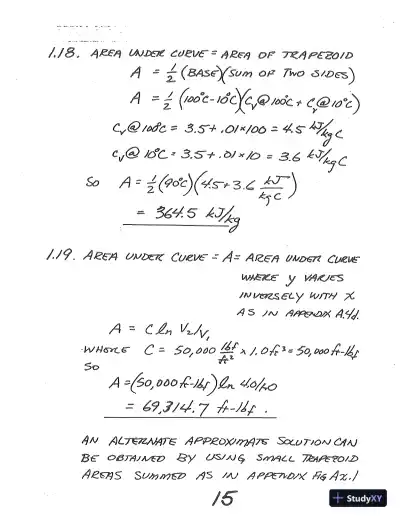 1.18. AREA UNDER CURVE = AREA OF TRAPEZOID
A = 1/2 (BASE)(SUM OF TWO SIDES)
A = 1/2 (100°C-10°C)(Cv@100C + Cv@10°C)
Cv@100C = 3.5+.01×100 = 4.5 kJ/kg C
Cv@10C = 3.5+.01×10 = 3.6 kJ/kg C
SO A = 1/2 (90°C)(4.5+3.6 kJ/kg C)
= 364.5 kJ/kg
1.19. AREA UNDER CURVE = A = AREA UNDER CURVE
WHERE y VARIES
INVERSELY WITH X
AS IN APPENDIX A.4d.
A = C ln V2/V1
WHERE C = 50,000 lbf/ft² × 1.0 ft³ = 50,000 ft-lbf
SO
A = (50,000 ft-lbf) ln 4.0/1.0
= 69,314.7 ft-lbf.
AN ALTERNATE APPROXIMATE SOLUTION CAN
BE OBTAINED BY USING SMALL TRAPEZOID
AREAS SUMMED AS IN APPENDIX FIG A2.1
15
StudyXY